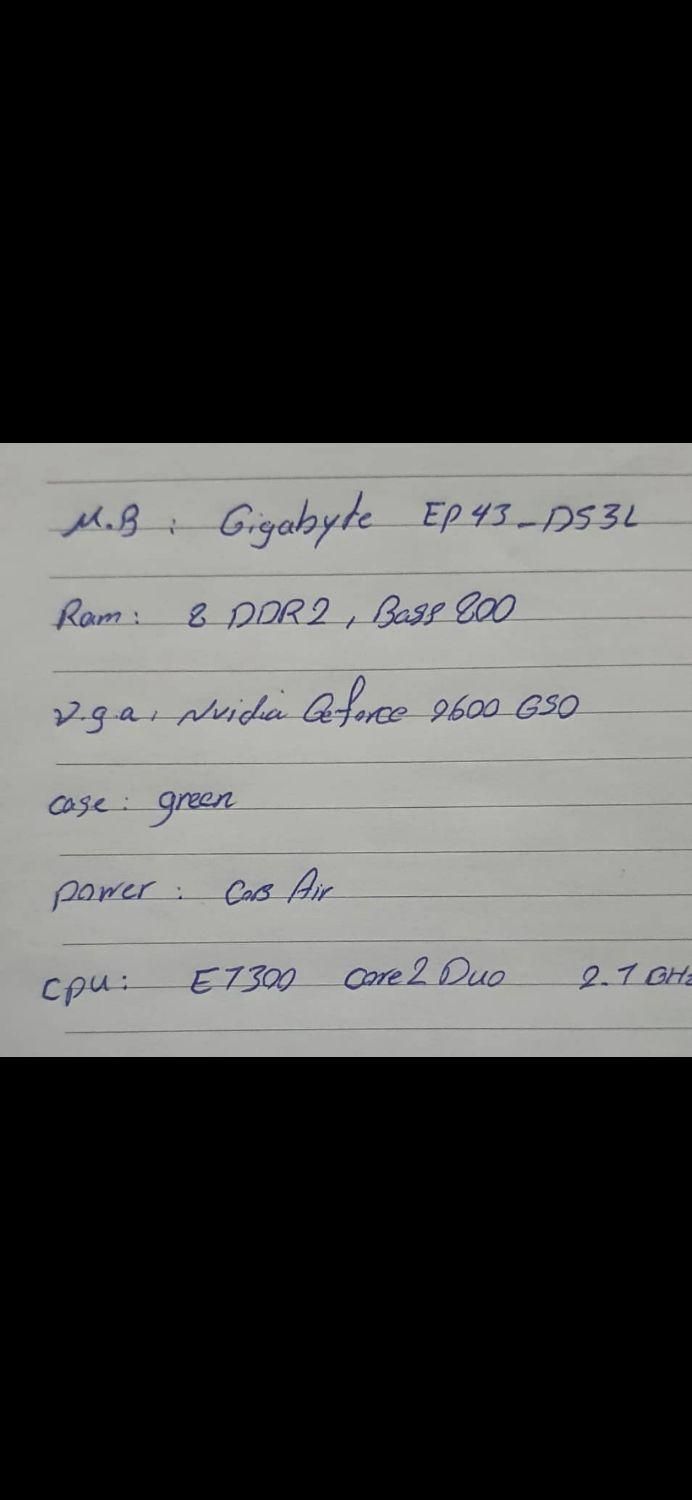 M.B : Gigabyte EP43-DS3L
Ram: 8 DDR2, Bass 800
v.g.a, Nvidia Geforce 9600 GSO
case: green
power: Air
cpu: E7300 core2 Duo 2.7 GHz